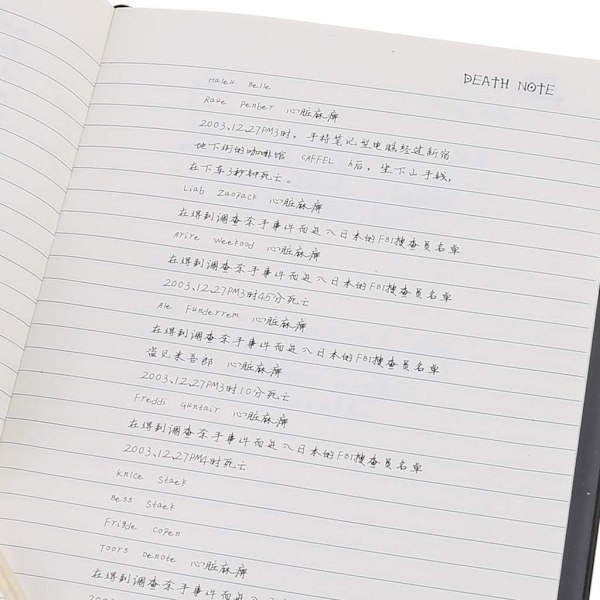 DEATH NOTE
Haleu Belle
Raue Penber 心脏麻痹
2003、12、27PM3时，手持笔记型电脑经过新宿
地下街的咖啡馆 CAFFEL 后，坐下山手线，
在下车3秒钟死亡。
Liab Zaopack 心脏麻痹
在得到调查杀手事件而进入日本的FBI搜查员名单
Arire Weekood 心脏麻痹
在得到调查杀手事件而进入日本的FBI搜查员名单
2003、12、27PM3时45分死亡
Ale Funderrem 心脏麻痹
在得到调查杀手事件而进入日本的FBI搜查员名单
盗见来吾郎 心脏麻痹
2003、12、27PM3时10分死亡
Freddi Guntair 心脏麻痹
在得到调查杀手事件而进入日本的FBI搜查员名单
2003、12、27PM4时死亡
Knice Staek
Bess Staek
Friide Copen
Toors Denote 心脏麻痹
在得到调查杀手事件而进入日本的FBI搜查员名单